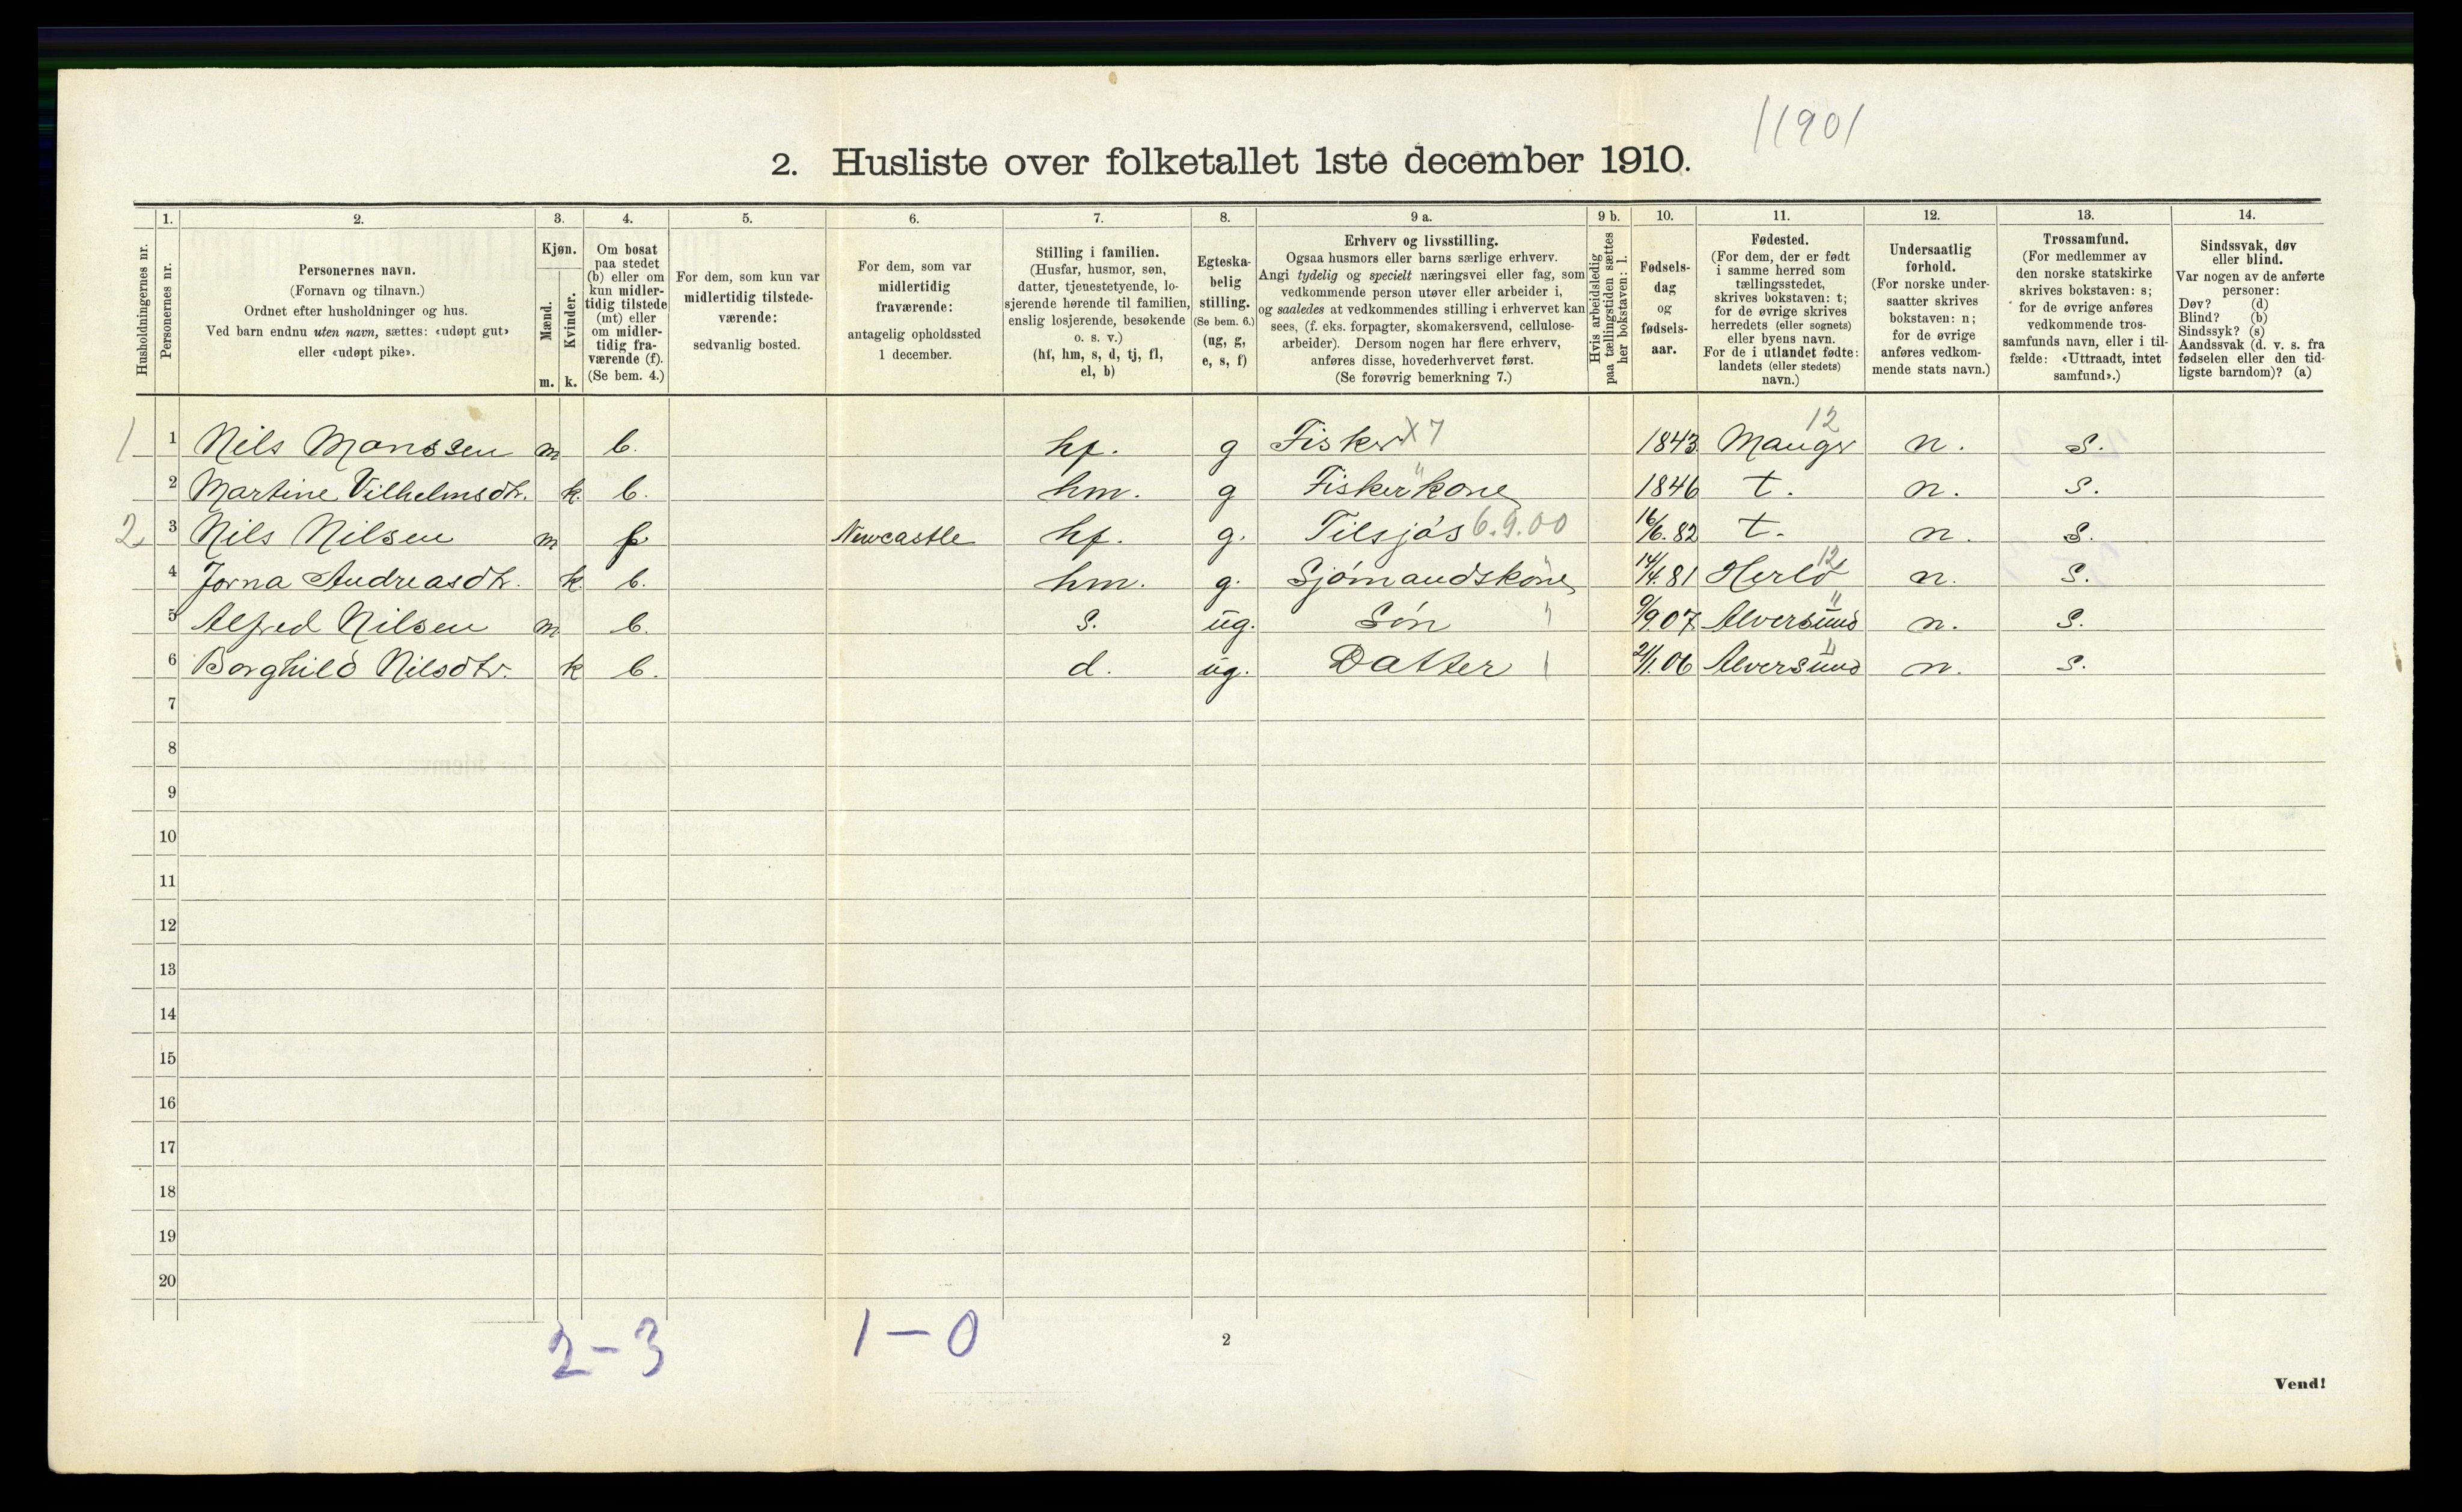 11901
2. Husliste over folketallet 1ste december 1910.
Husholdningernes nr.
1. Personernes nr.
2. Personernes navn. (Fornavn og tilnavn.) Ordnet efter husholdninger og hus. Ved barn endnu uten navn, sættes: «udøpt gut» eller «udøpt pike».
3. Kjøn. Mænd. m. Kvinder. k.
4. Om bosat paa stedet (b) eller om kun midlertidig tilstede (mt) eller om midlertidig fraværende (f). (Se bem. 4.)
5. For dem, som kun var midlertidig tilstedeværende: sedvanlig bosted.
6. For dem, som var midlertidig fraværende: antagelig opholdssted 1 december.
7. Stilling i familien. (Husfar, husmor, søn, datter, tjenestetyende, losjerende hørende til familien, enslig losjerende, besøkende o. s. v.) (hf, hm, s, d, tj, fl, el, b)
8. Egteskabelig stilling. (Se bem. 6.) (ug, g, e, s, f)
9 a. Erhverv og livsstilling. Ogsaa husmors eller barns særlige erhverv. Angi tydelig og specielt næringsvei eller fag, som vedkommende person utøver eller arbeider i, og saaledes at vedkommendes stilling i erhvervet kan sees, (f. eks. forpagter, skomakersvend, cellulosearbeider). Dersom nogen har flere erhverv, anføres disse, hovederhvervet først. (Se forøvrig bemerkning 7.)
9 b. Hvis arbeidsledig paa tællingstiden sættes her bokstaven: l.
10. Fødselsdag og fødselsaar.
11. Fødested. (For dem, der er født i samme herred som tællingsstedet, skrives bokstaven: t; for de øvrige skrives herredets (eller sognets) eller byens navn. For de i utlandet fødte: landets (eller stedets) navn.)
12. Undersaatlig forhold. (For norske undersaatter skrives bokstaven: n; for de øvrige anføres vedkommende stats navn.)
13. Trossamfund. (For medlemmer av den norske statskirke skrives bokstaven: s; for de øvrige anføres vedkommende trossamfunds navn, eller i tilfælde: «Uttraadt, intet samfund».)
14. Sindssvak, døv eller blind. Var nogen av de anførte personer: Døv? (d) Blind? (b) Sindssyk? (s) Aandssvak (d. v. s. fra fødselen eller den tidligste barndom)? (a)
1 1 Nils Monssen m b. hf. g Fisker X7 1843 Manger 12 n. s.
2 Martine Vilhelmsdtr. k. b. hm. g Fisker kone " 1846 t. n. s.
2 3 Nils Nilsen m f Newcastle hf. g. Tilsjøs 6.9.00 16/6.82 t. n. s.
4 Jorna Andreasdtr. k b. hm. g. Sjømandskone " 14/4.81 Herlø 12 n. s.
5 Alfred Nilsen m b. s. ug. Søn " 9/9.07 Alversund " n. s.
6 Borghild Nilsdtr. k b. d. ug. Datter 2/1.06 Alversund " n. s.
7
8
9
10
11
12
13
14
15
16
17
18
19
20
2-3 1-0
2
Vend!